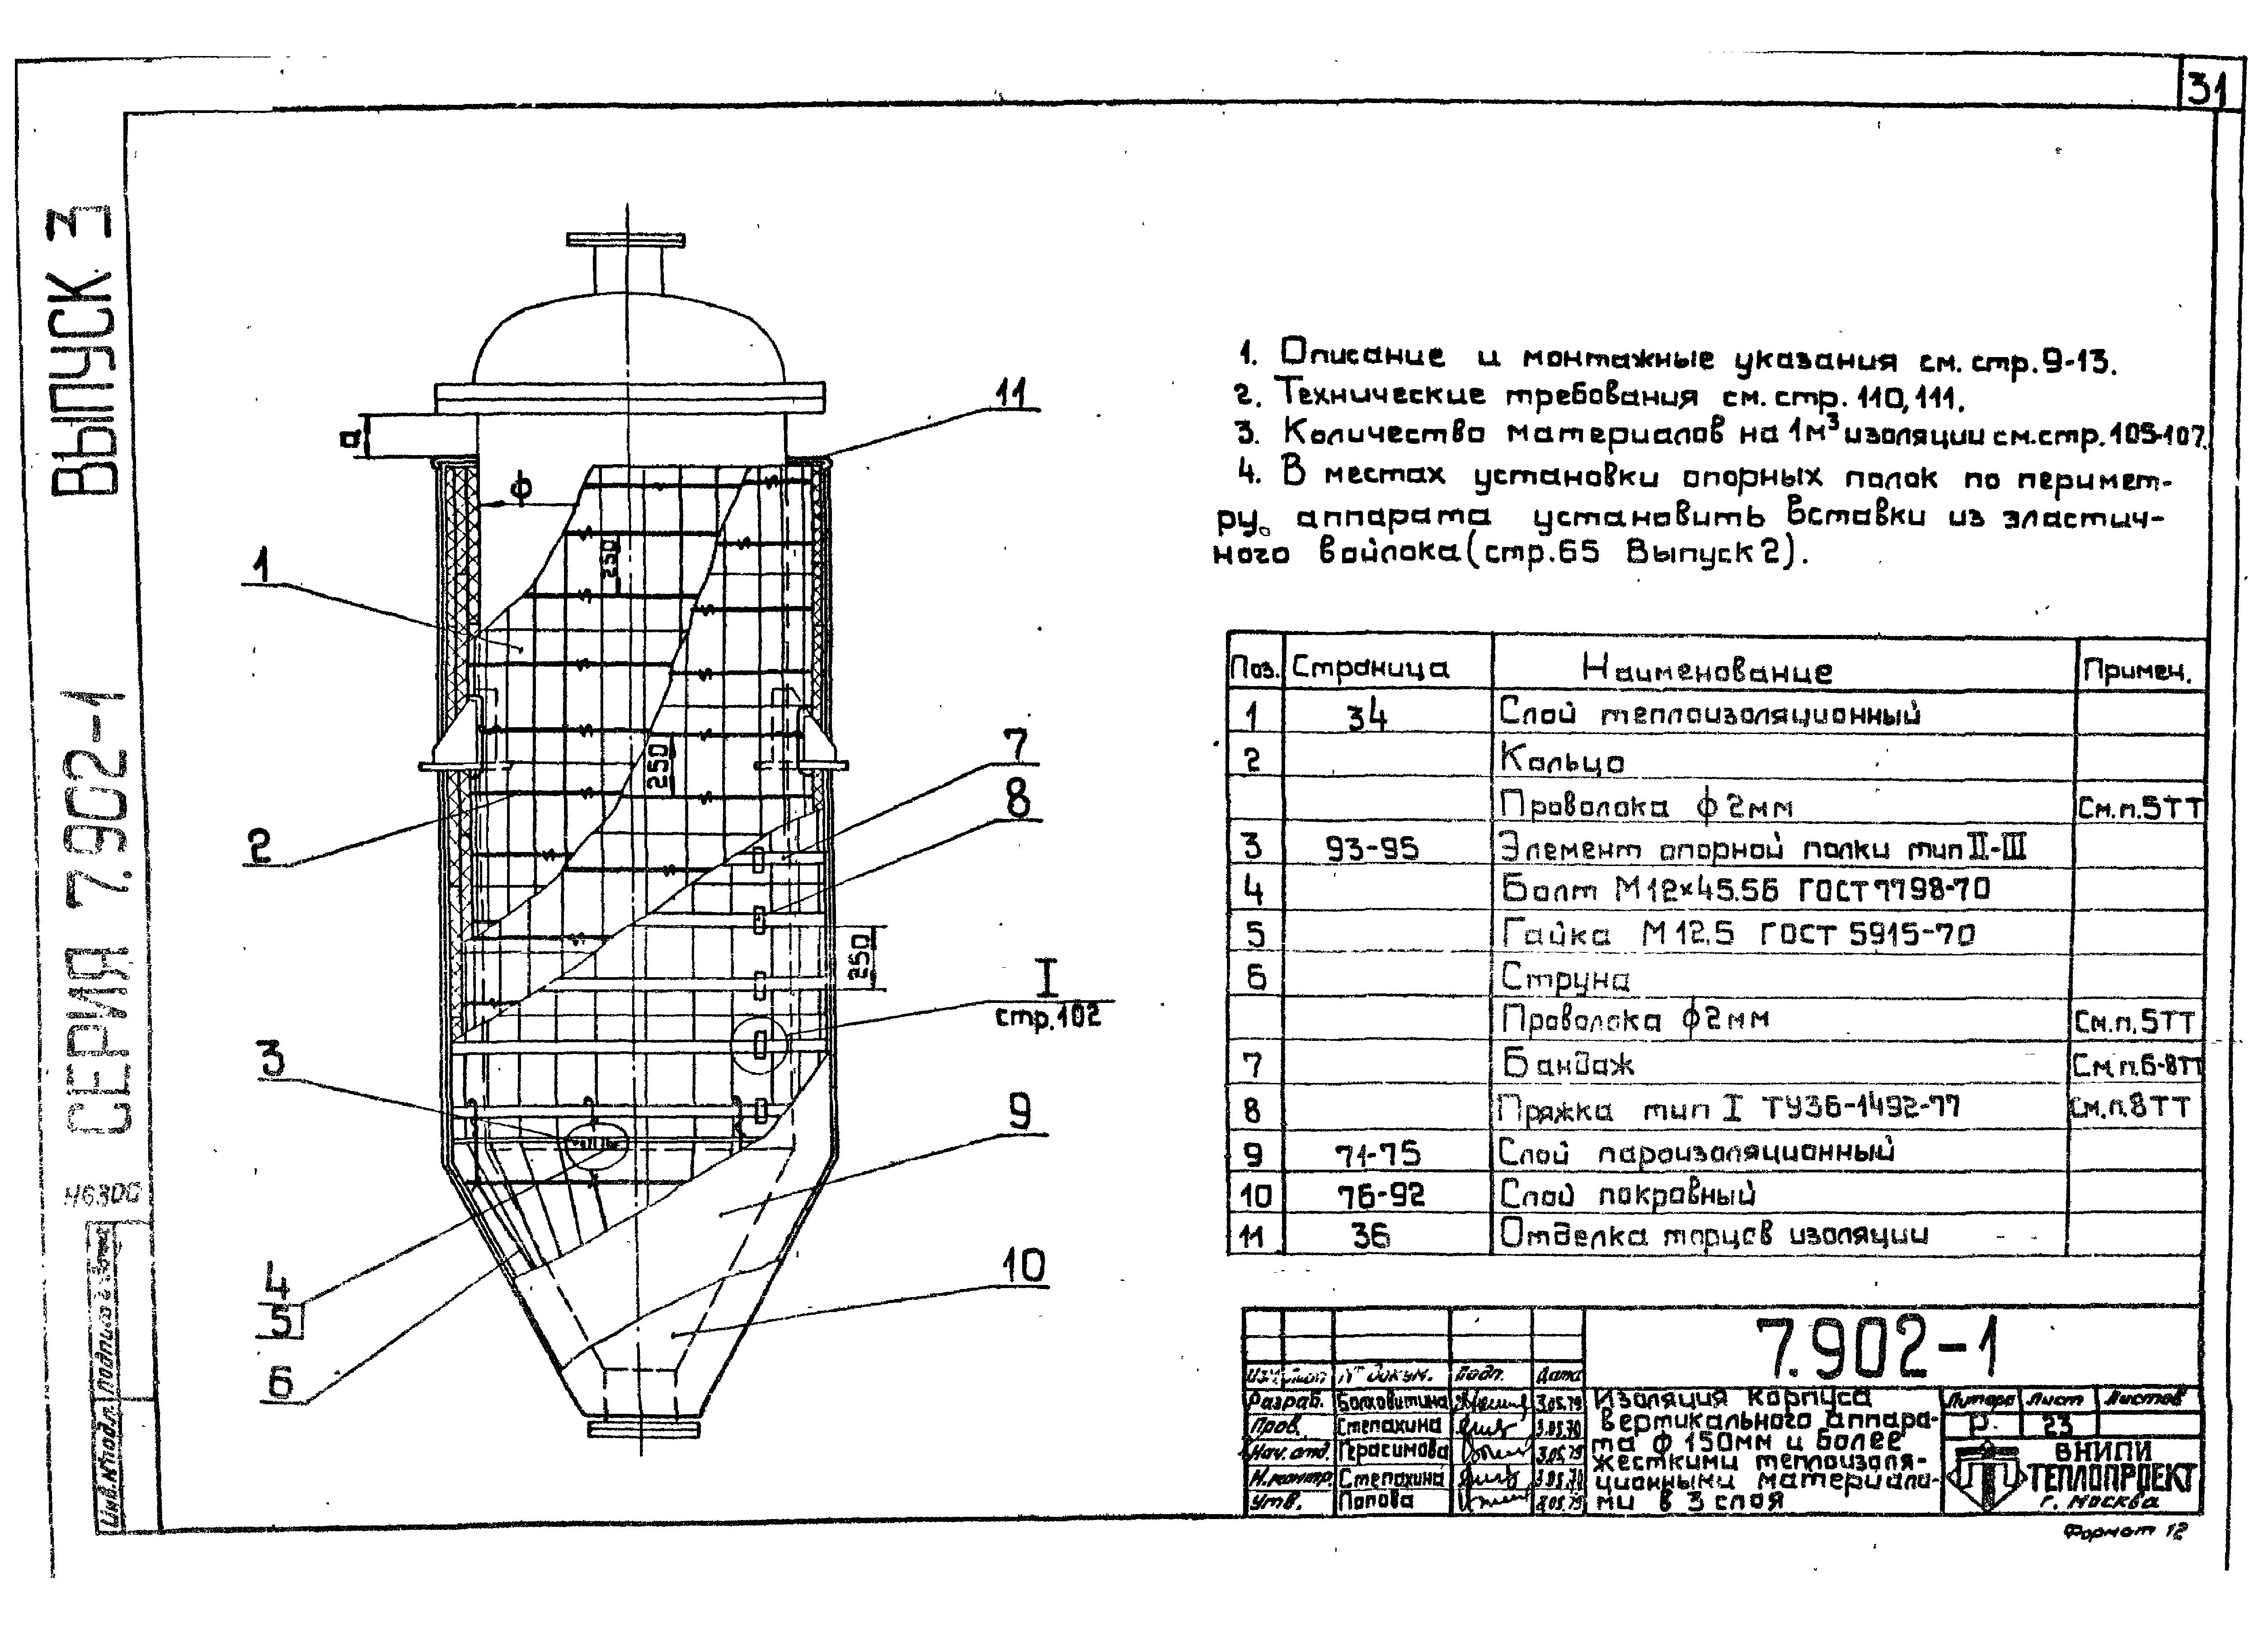 31
ВЫПУСК 3
СЕРИЯ 7.902-1
Инв.№подл. Подпись
a
ф
250
250
250
1
2
3
4
5
6
7
8
I
стр.102
9
10
11
1. Описание и монтажные указания см. стр.9-13.
2. Технические требования см. стр. 110, 111.
3. Количество материалов на 1м³ изоляции см.стр.105-107.
4. В местах установки опорных полок по перимет-
ру аппарата установить вставки из эластич-
ного войлока (стр.65 Выпуск 2).
Поз. Страница Наименование Примеч.
1 34 Слой теплоизоляционный
2 Кольцо
Проволока ф 2мм См.п.5ТТ
3 93-95 Элемент опорной полки тип II-III
4 Болт М12×45.56 ГОСТ 7798-70
5 Гайка М12.5 ГОСТ 5915-70
6 Струна
Проволока ф2мм См.п.5ТТ
7 Бандаж См.п.6-8ТТ
8 Пряжка тип I ТУ36-1492-77 См.п.8ТТ
9 71-75 Слой пароизоляционный
10 76-92 Слой покровный
11 36 Отделка торцов изоляции
7.902-1
№ докум. Подп. Дата
Разраб. Болховитина 3.05.79
Пров. Степахина
Нач. отд. Герасимова 3.05.79
Н.контр. Степахина
Утв. Попова
Изоляция корпуса
вертикального аппара-
та ф 150мм и более
жесткими теплоизоля-
ционными материала-
ми в 3 слоя
Литера Лист Листов
Р. 23
ВНИПИ
ТЕПЛОПРОЕКТ
г. Москва
Формат 12